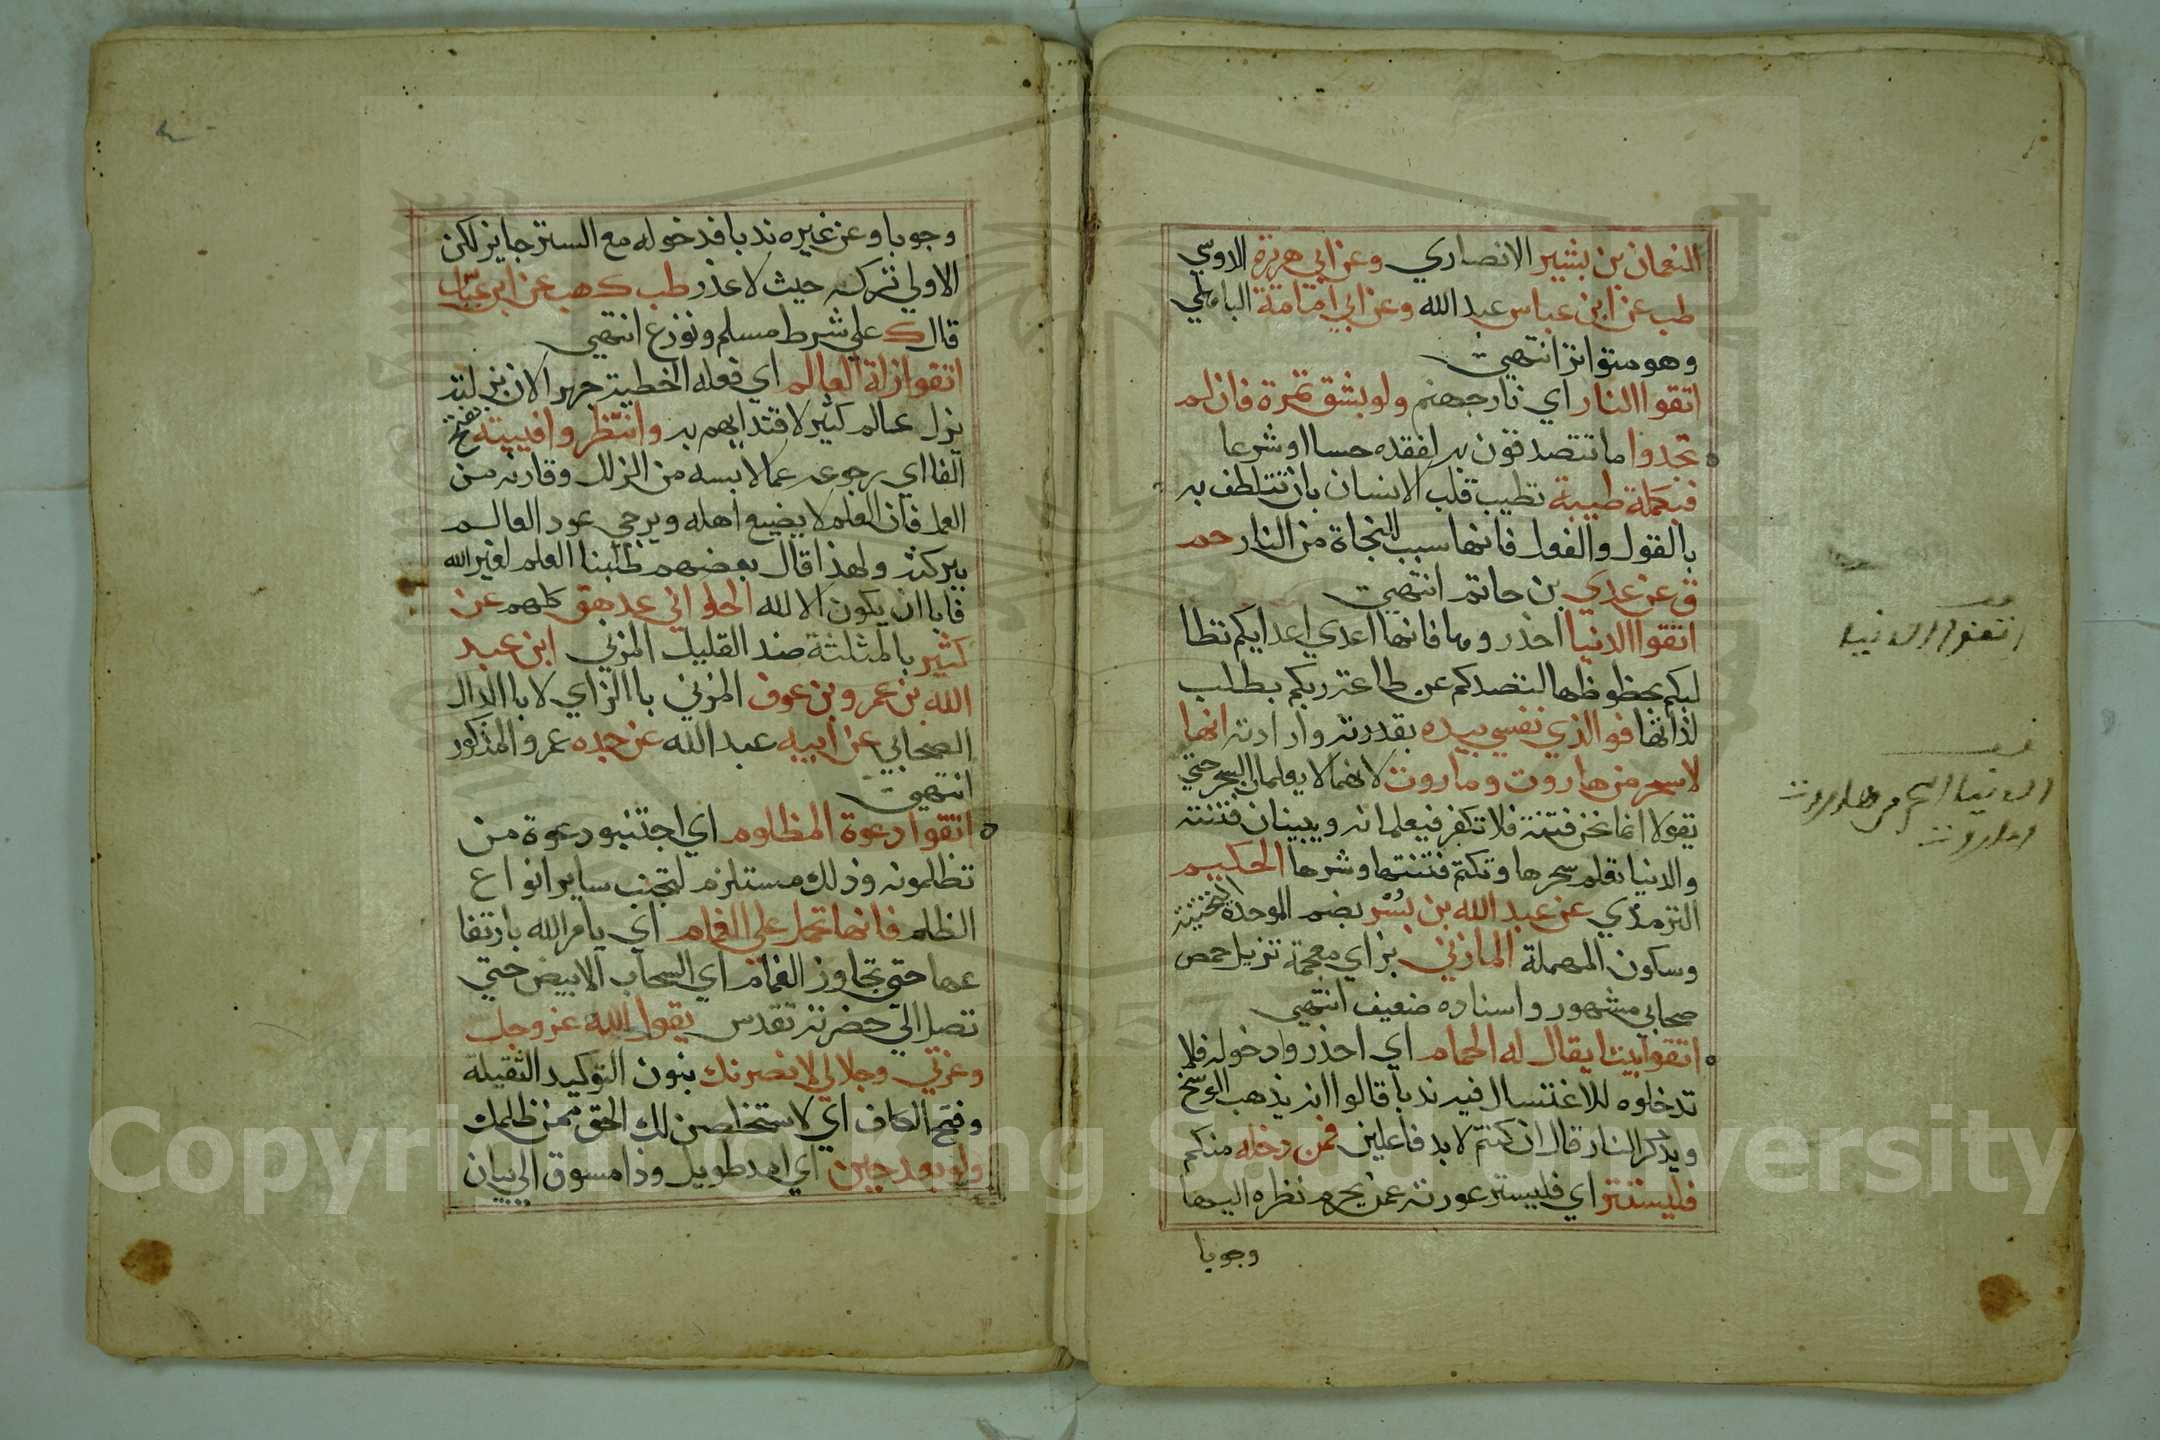 النعمان بن بشير الانصاري وعن ابي هريرة الدوسي
طب عن ابن عباس عبد الله وعن ابي امامة الباهلي
وهو متواتر انتهيت
اتقوا النار اي نار جهنم ولو بشق تمرة فان لم
تجدوا ما تتصدقون به لفقده حسا او شرعا
فبكلمة طيبة تطيب قلب الانسان بان تتلطف به
بالقول والفعل فانها سبب للنجاة من النار حم
ق عن عدي بن حاتم انتهيت
اتقوا الدنيا احذروها فانها اعدي اعدايكم تطا
لبكم بحظوظها لتصدكم عن طاعة ربكم بطلب
لذاتها فو الذي نفسي بيده بقدرته وارادته انها
لاسحر من هاروت وماروت لانهما لا يعلمان السحر حتي
يقولا انما نحن فتنة فلا تكفر فيعلمانه ويبينان فتنته
والدنيا تعلم سحرها وتكتم فتنتها وشرها الحكيم
الترمذي عن عبد الله بن بسر بضم الموحدة التحتية
وسكون المهملة المازني بزاي معجمة نزيل حمص
صحابي مشهور واسناده ضعيف انتهي
اتقوا بيتا يقال له الحمام اي احذروا دخوله فلا
تدخلوه للاغتسال فيه ندبا قالوا انه يذهب الوسخ
ويذكر النار قال ان كنتم لا بد فاعلين فمن دخله منكم
فليستتر اي فليستر عورته عمن يحرم نظره اليها
وجوبا
اتقوا الدنيا
الدنيا اسحر من هاروت
وماروت
وجوبا وعن غيره ندبا فدخوله مع الستر جايز لكن
الاولي تركه حيث لا عذر طب ك هب عن ابن عباس
قال ك علي شرط مسلم ونوزع انتهي
اتقوا زلة العالم اي فعله الخطية جهرا لان بزلته
يزل عالم كثير لاقتدايهم به وانتظروا فييته بفتح
الفا اي رجوعه عما لابسه من الزلل وقارنه من
العمل فان العلم لا يضيع اهله ويرجي عود العالم
ببركته ولهذا قال بعضهم طلبنا العلم لغير الله
فابا ان يكون الا لله الحلواني عد هق كلهم عن
كثير بالمثلثة ضد القليل المزني ابن عبد
الله بن عمرو بن عوف المزني باالزاي لا باالدال
الصحابي عن ابيه عبد الله عن جده عمرو المذكور
انتهيت
اتقوا دعوة المظلوم اي اجتنبو دعوة من
تظلمونه وذلك مستلزم لتجنب ساير انواع
الظلم فانها تحمل علي الغمام اي يامر الله بارتفا
عها حتي تجاوز الغمام اي السحاب الابيض حتي
تصل الي حضرته تقدس يقول الله عز وجل
وعزتي وجلالي لانصرنك بنون التوكيد الثقيلة
وفتح الكاف اي لاستخلصن لك الحق ممن ظلمك
ولو بعد حين اي امد طويل وذا مسوق الي بيان